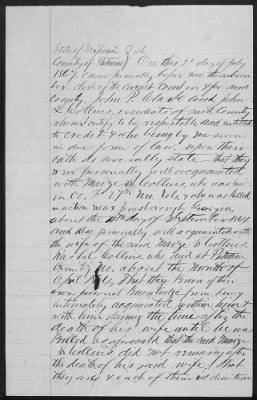 State of Missouri } S.S.
County of Putnam } On this 2d day of July
1867, came personally before me the subscri-
ber clerk of the County Court in & for said
County John P. Clark and John
D Collins, residents of said County
whom I certify to be respectable and entitled
to credit & who being by me sworn
in due form of law, upon their
oath do severally state that they
were personally well acquainted
with Moize D Collins who was mem.
in Co. F 18th Mo Vols & who was killed
in action near Jonesboro Georgia
about the day of September 1864
and also personally well acquainted with
the wife of the said Moize D Collins.
Rachel Collins who died at Putnam
County Mo, about the Month of
April 186, That they know of their
own personal knowledge from being
intimately acquainted with her &
with him during the time after the
death of his wife until he was
Killed as aforesaid that the said Moize
D Collins did not remarry after
the death of his said wife, That
they are & each of them is disinter